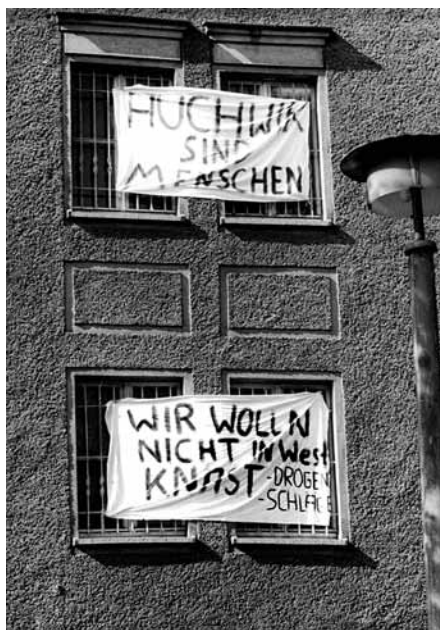 HUCHWIR
SIND
MENSCHEN
WIR WOLLN
NICHT IN West
KNAST -DROGEN
-SCHLÄGE